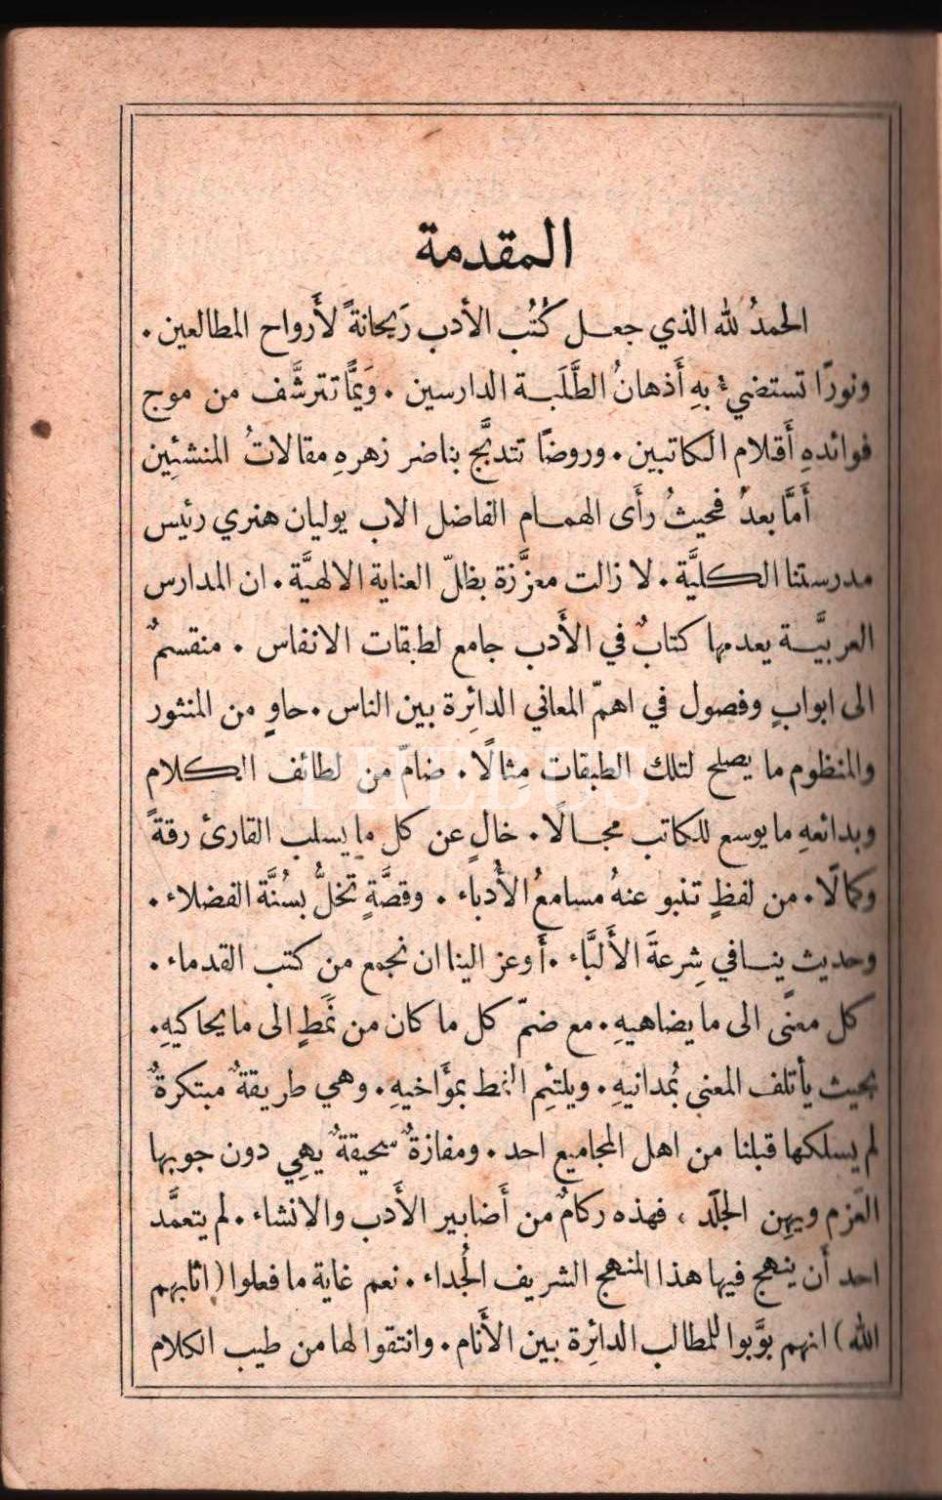 المقدمة
الحمدُ لله الذي جعل كُتُب الأدب رَيحانةً لأَرواح المطالعين .
ونورًا تستضيءُ بهِ أَذهانُ الطَّلَبة الدارسين . وَيَمًّا تترشَّف من موج
فوائدهِ أَقلام الكاتبين . وروضًا تتدبَّج بناضر زهرهِ مقالاتُ المنشئِين
أَمَّا بعدُ فحيثُ رأَى الهمام الفاضل الاب يوليان هنري رئيس
مدرستنا الكليَّة . لا زالت معزَّزة بظلّ العناية الالهيَّة . ان المدارس
العربيَّة يعدمها كتابٌ في الأَدب جامع لطبقات الانفاس . منقسمٌ
الى ابوابٍ وفصول في اهمّ المعاني الدائِرة بين الناس . حاوٍ من المنثور
والمنظوم ما يصلح لتلك الطبقات مِثالًا . ضامّ من لطائف الكلام
وبدائعهِ ما يوسع للكاتب مجالًا . خالٍ عن كل ما يسلب القارئ رقةً
وكمالًا . من لفظٍ تنبو عنهُ مسامعُ الأُدباء . وقصَّةٍ تُخلُّ بسُنَّة الفضلاء .
وحديث ينافي شِرعةَ الأَلبَّاء . أَوعز الينا ان نجمع من كتب القدماء .
كل معنًى الى ما يضاهيهِ . مع ضمّ كل ما كان من نَمَطٍ الى ما يحاكيهِ .
بحيث يأتلف المعنى بمُدانيهِ . ويلتئِم النمط بمؤَاخيهِ . وهي طريقةٌ مبتكرةٌ
لم يسلكها قبلنا من اهل المجاميع احد . ومفازةٌ سحيقةٌ يهِي دون جوبها
العَزم ويهِن الجَلَد ، فهذه ركامٌ من أَضابير الأَدب والانشاء . لم يتعمَّد
احد أَن ينهج فيها هذا المنهج الشريف الجُداء . نعم غاية ما فعلوا (اثابهم
الله) انهم بوَّبوا للمطالب الدائِرة بين الأَنام . وانتقوا لها من طيب الكلام
THEBUS